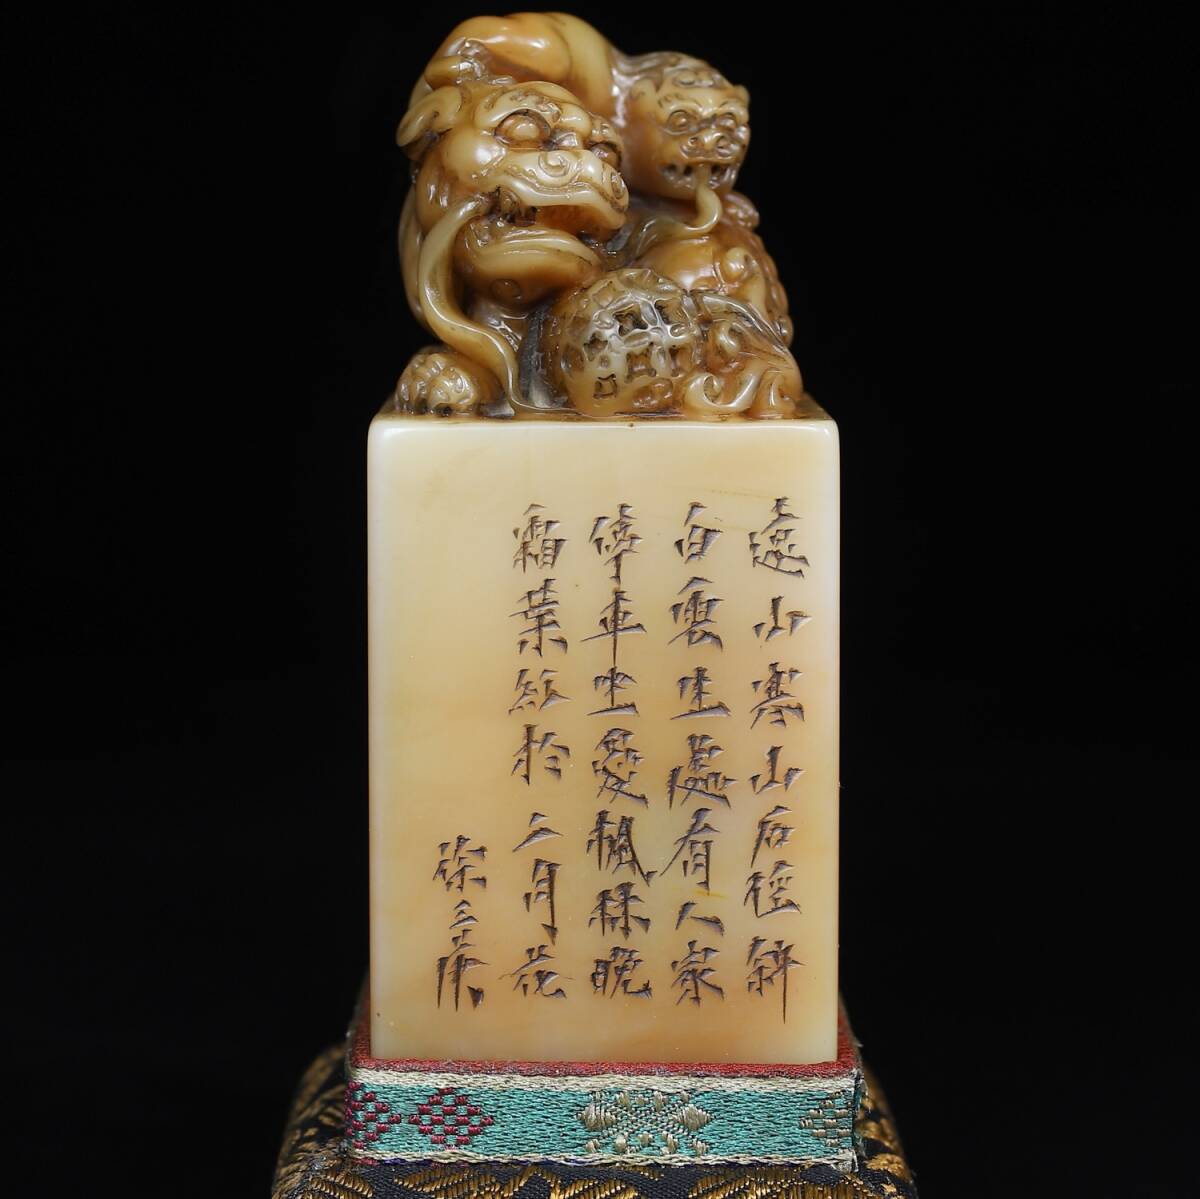 遠山寒山石徑斜
白雲生處有人家
停車坐愛楓林晚
霜葉紅於二月花
徐三庚